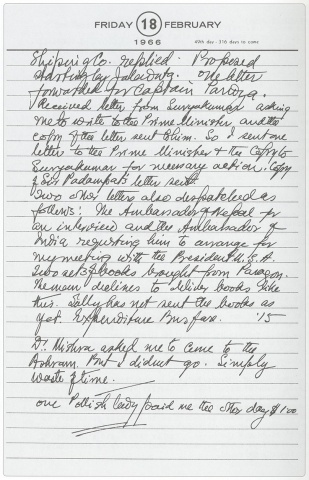 FRIDAY 18 FEBRUARY
1966 49th day - 316 days to come
Shipping Co. replied. Proposed
starting by Jaladurga. One letter
forwarded for Captain
Received letter from Suryakumar asking
me to write to the Prime Minister, and the
copy of the letter sent to him. So I sent one
letter to the Prime Minister & the Copy to
Suryakumar for necessary action. Copy
of Sir Padampat's letter sent.
Two other letters also despatched as
follows: The Ambassador of Nepal for
an interview and the Ambassador of
India requesting him to arrange for
my meeting with the President U.S.A.
Two sets of books brought from Paragon.
The man declines to deliver books like
this. Sally has not sent the books as
yet. Expenditure Bus fare. '15
Dr. Mishra asked me to come to the
Ashram. But I didn't go. Simply
waste of time.
One Polish lady paid me the other day $1.00